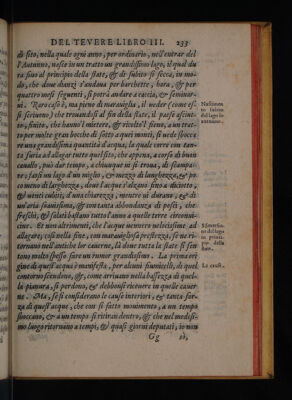 DEL TEVERE LIBRO III. 233
di sito, nella quale ogni anno, per ordinario, nell'entrar del
l'Autunno, nasce in un tratto un grandissimo lago, il qual du
ra sino al principio della state, & di subito si secca, in mo-
do, che dove dianzi s'andava per barchetta, hora, & per
quattro mesi seguenti, si potrà andare a caccia, & semina-
ri. Raro caso è, ma pieno di maraviglia, il veder (come es-
si scrivono) che trovandosi al fin della state, il paese asciut-
to, finito, che hanno'l mietere, & rivolto'l fieno, a un trat-
to per molte gran bocche di sotto a quei monti, si vede sboccа
re una grandissima quantità d'acqua, la quale corre con tan-
ta furia ad allagar tutto quel sito, che appena, a corso di buon
cavallo, può dar tempo, a chiunque vi si trova, di scampa-
re: fassi un lago d'un miglio, & mezzo di lunghezza, & po
co meno di larghezza, dove l'acque s'alzano sino a diciotto,
& venti cubiti, d'una chiarezza, mentre vi durano, & di
un'aria sanissima, & contanta abbondanza di pesci, che
freschi, & salati bastano tutto l'anno a quelle terre circonvi-
cine. Et non altrimente, che l'acque vennero velocissime ad
allagare; così nella fine, con maravigliosa prestezza, se ne ri-
tornano nell'antiche lor caverne, là dove tutta la state si sen
tono molto spesso fare un rumor grandissimo. La prima ori
gine di questi acque è manifesta, per alcuni fiumicelli, di quel
contorno fanno, & come arrivano nella bassezza di quel-
la pianura, si perdono, & debbonsi ricevere in quelle caver
ne. Ma, se si considerano le cause interiori, & tanta for-
za di quest'acque, che con sì fatto movimento, a un tempo
shoccano, & a un tempo si ritiran dentro, & che nel medesi-
mo luogo ritornino a tempi, & quasi giorni deputati, io non
Gg sò,
Nascimen
to subito
del lago in
autunno.
del lago
in princi-
pio della
state.
Le cause.